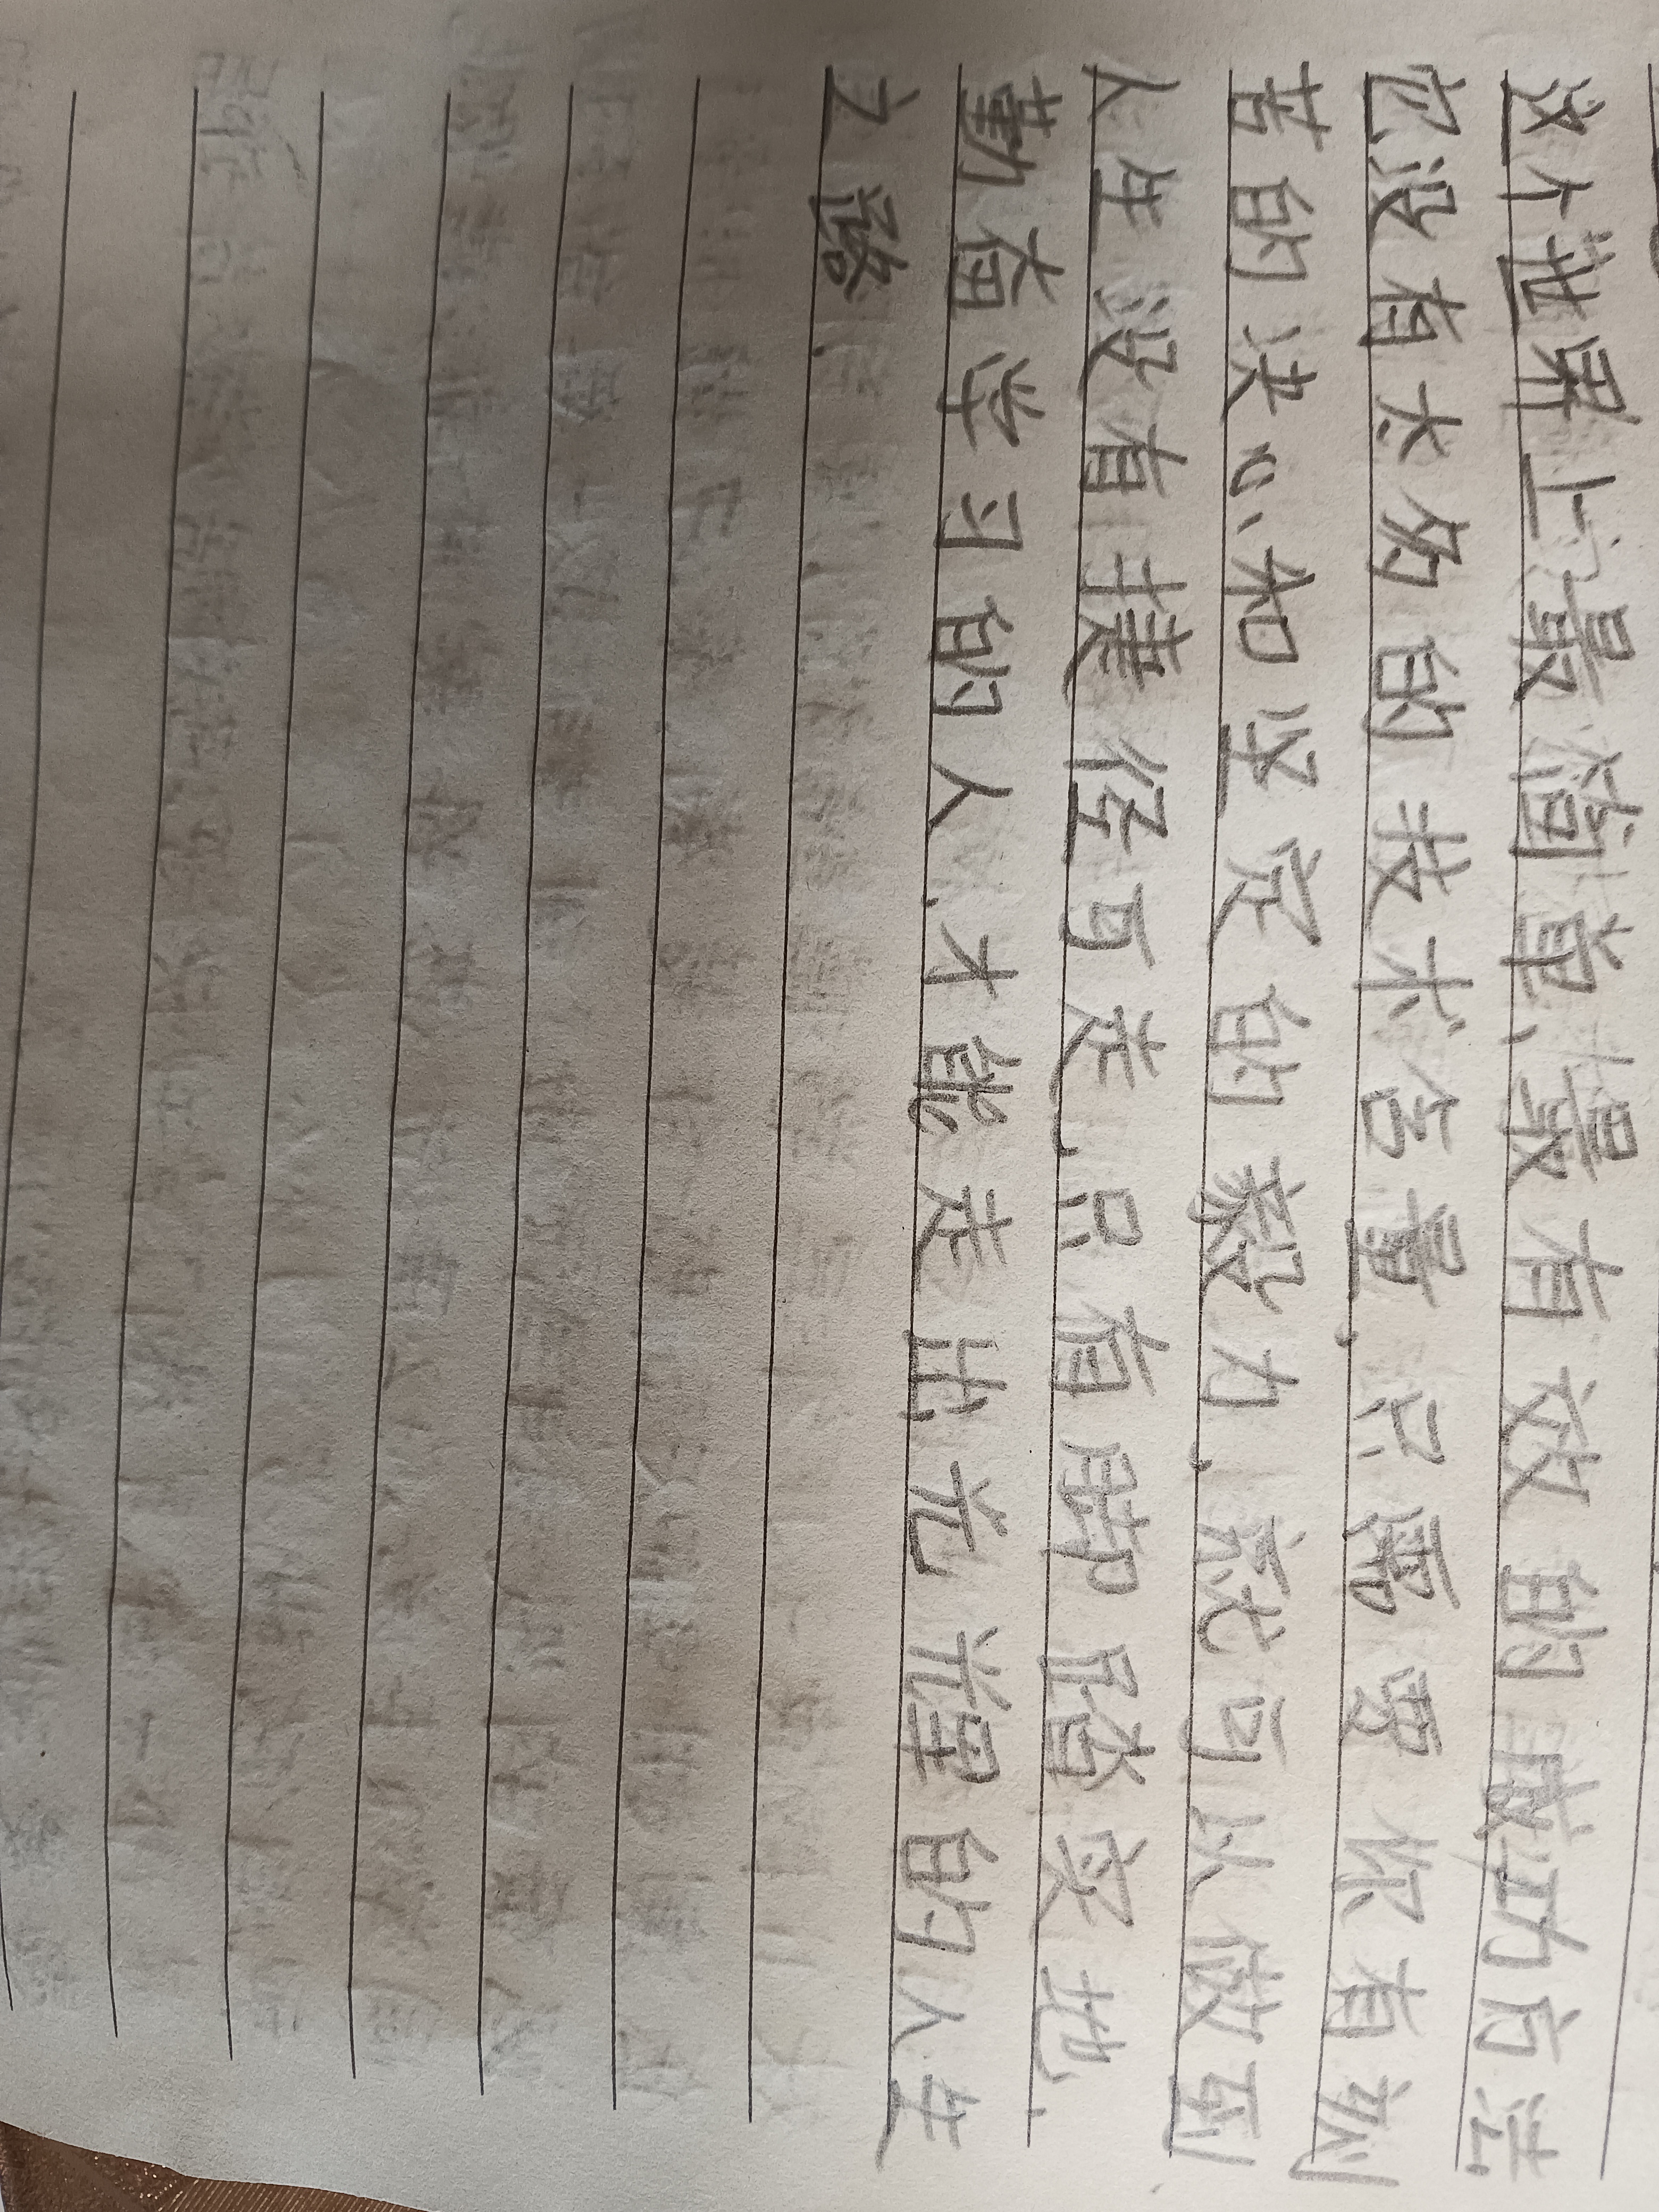 这个世界上最简单、最有效的成功方法
它没有太多的技术含量,只需要你有刻
苦的决心和坚定的毅力,就可以做到
人生没有捷径可走,只有脚踏实地、
勤奋学习的人,才能走出光辉的人生
之路.